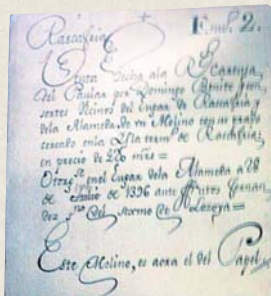 Rascafria
Emb. 2.
Venta hecha ala Rl Cartuja
del Paular por Domingo Benito
Vecinos del Lugar de Rascafria y
dela Alameda, de un Molino con un prado
cercado enla termo de Rascafria,
en precio de mrs =
Otorgose en el Lugar dela Alameda a 28
de Julio de 1396 ante Frutos Fernan
dez sno del sexmo de Lozoya =
Este Molino, es aora el del Papel